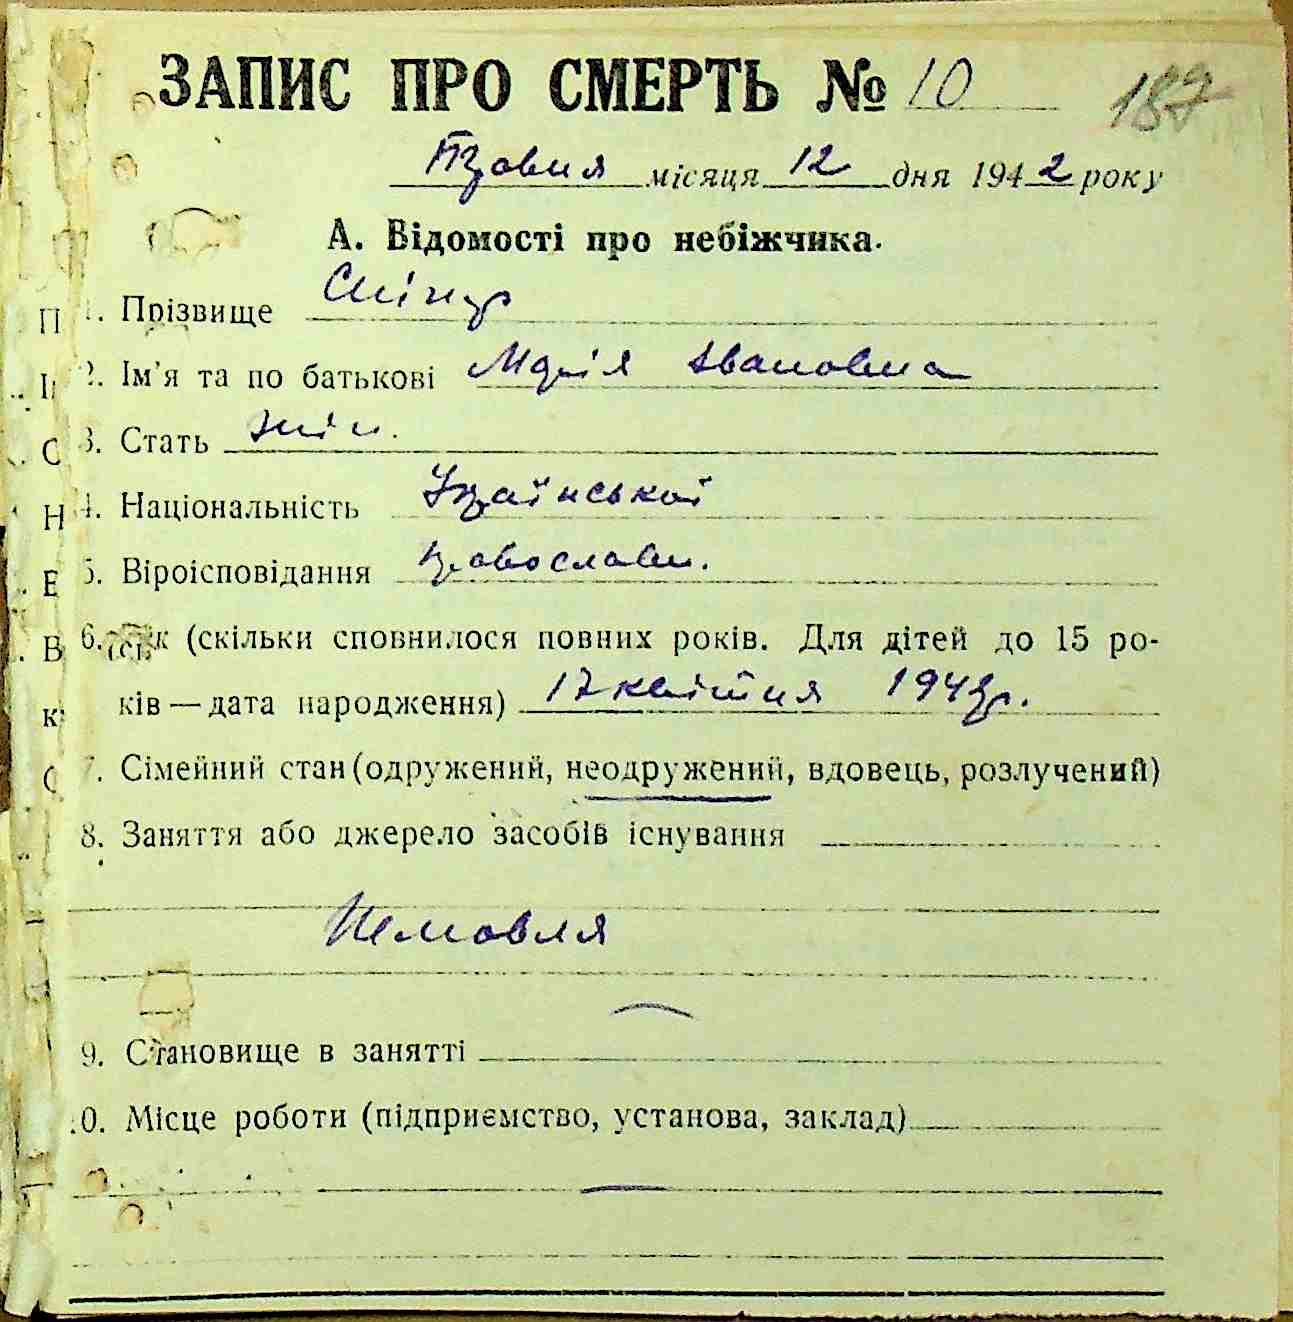 ЗАПИС ПРО СМЕРТЬ № 10 187
Травня місяця 12 дня 1942 року
А. Відомості про небіжчика.
1. Прізвище
2. Ім'я та по батькові Марія Івановна
3. Стать жін.
4. Національність Української
5. Віроісповідання православн.
6. Вік (скільки сповнилося повних років. Для дітей до 15 ро-
ків — дата народження) 17 квітня
7. Сімейний стан (одружений, неодружений, вдовець, розлучений)
8. Заняття або джерело засобів існування
Немовля
9. Становище в занятті
10. Місце роботи (підприємство, установа, заклад)